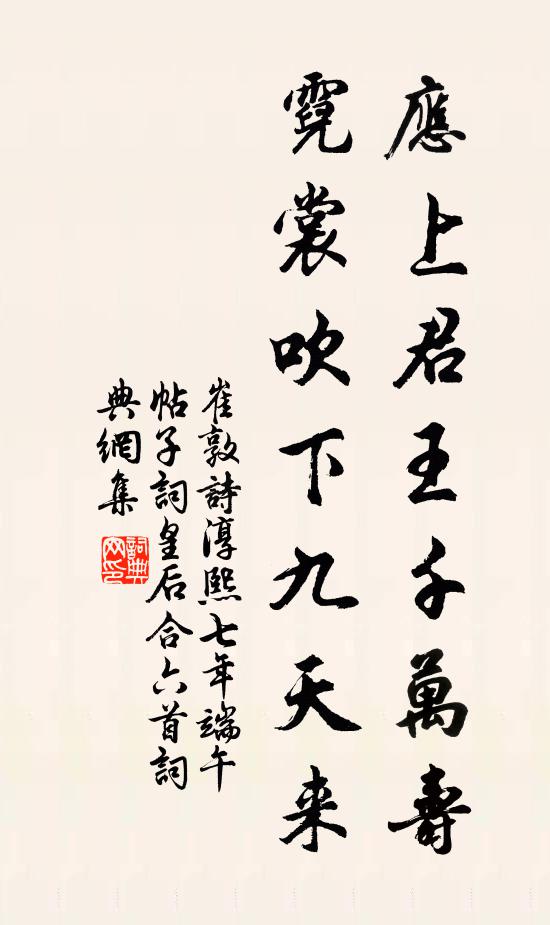 應上君王千萬壽
霓裳吹下九天来
崔敦詩淳熙七年端午
帖子詞皇后合六首詞
典網集
詞典
网印